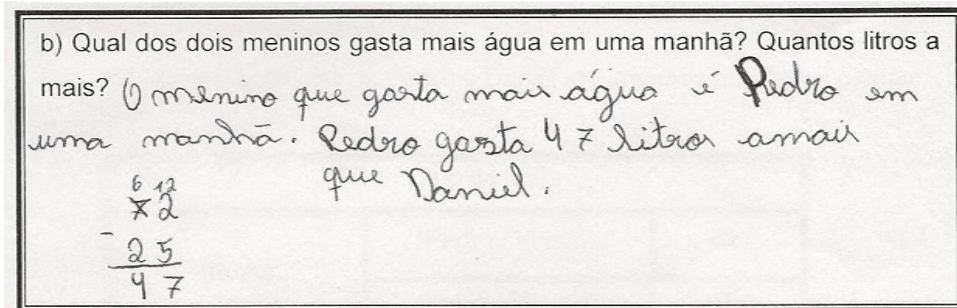 b) Qual dos dois meninos gasta mais água em uma manhã? Quantos litros a
mais? O menino que gasta mais água é Pedro em
uma manhã. Pedro gasta 47 litros amais
que Daniel.
6 12
72
- 25
47